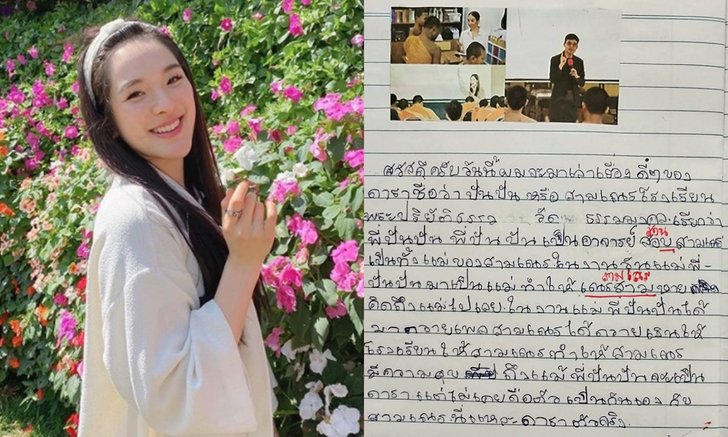 สวัสดีครับวันนี้ผมจะมาเล่าเรื่อง ดีๆของ
ดาราชื่อว่า ปันปัน หรือ สามเณรโรงเรียน
พระปริยัติธรรม วัด ธรรมมงคลเรียกว่า
พี่ปันปัน พี่ปันปันเป็นอาจารย์ สอน สามเณร
เป็นทั้งแม่ของสามเณรในงานวันแม่พี่
ปันปันมาเป็นแม่ทำให้ สามเณร หาย
คิดถึงแม่ไปเลยในงานแม่พี่ปันปันได้
มาถวายเพลสามเณรได้ถวาย ให้
โรงเรียนให้สามเณรทำให้สามเณร
มีความสุข ถึงแม้พี่ปันปันจะเป็น
ดารา แต่ไม่เคยถือตัวเป็นกันเองกับ
สามเณรนี่แหละดาราตัวจริง